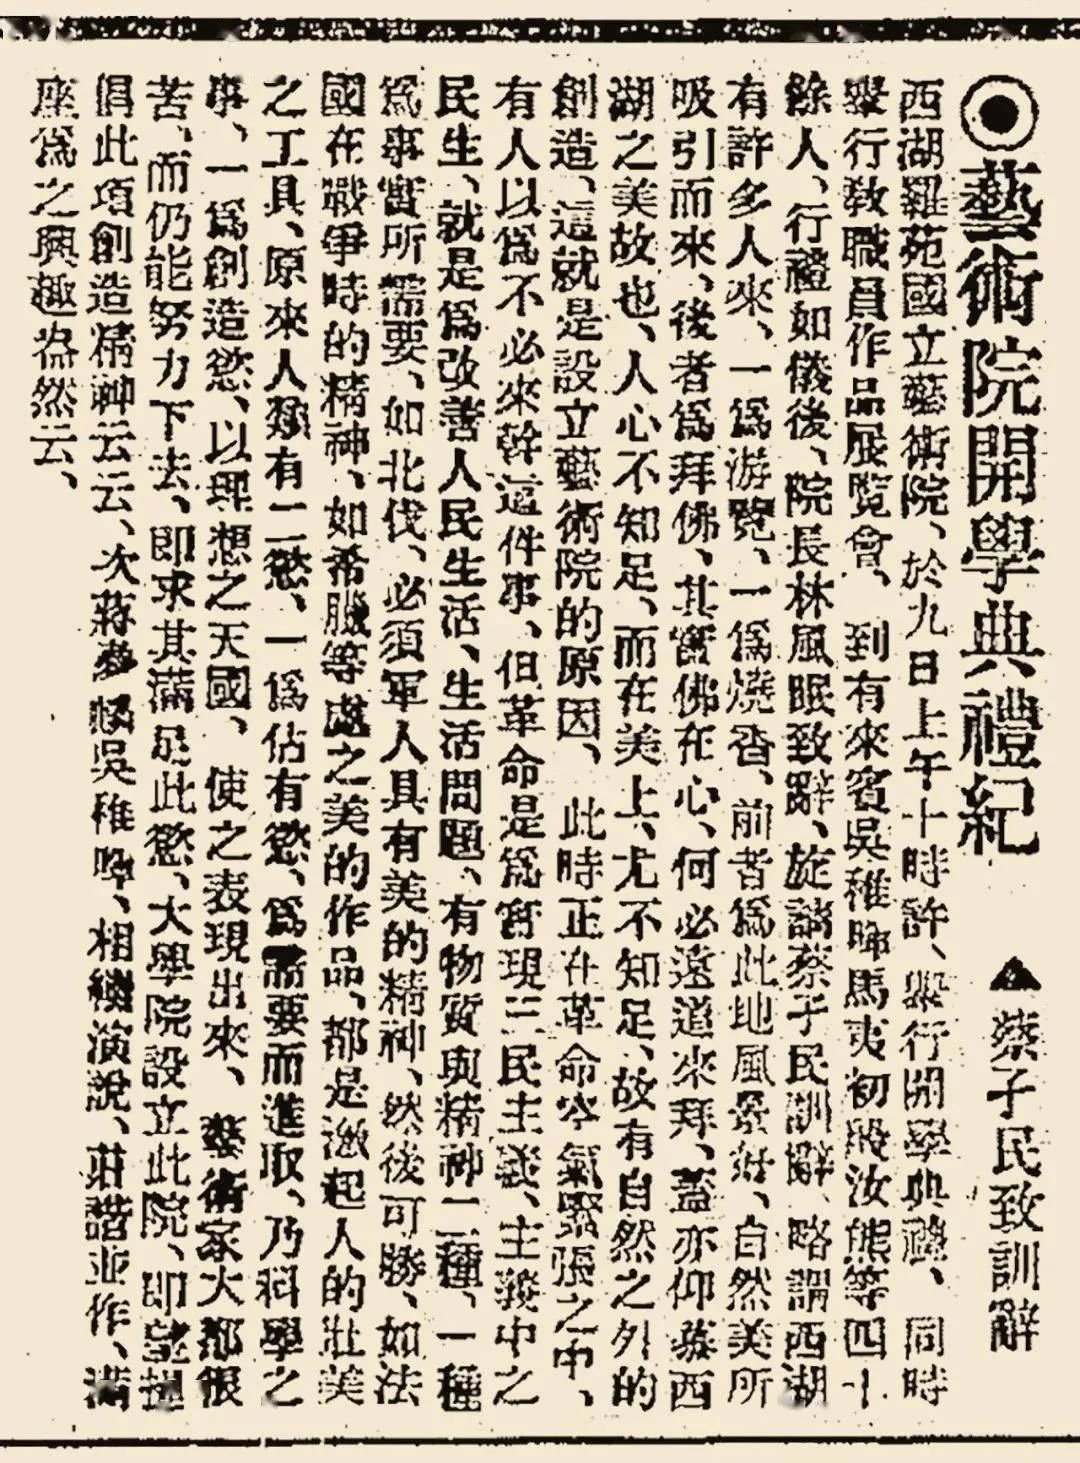 ◉藝術院開學典禮紀
▲蔡孑民致訓辭
西湖羅苑國立藝術院、於九日上午十時許、舉行開學典禮、同時
舉行敎職員作品展覽會、到有來賓吳稚暉馬夷初殷汝熊等四十
餘人、行禮如儀後、院長林風眠致辭、旋請蔡孑民訓辭、略謂西湖
有許多人來、一爲游覽、一爲燒香、前者爲此地風景好、自然美所
吸引而來、後者爲拜佛、其實佛在心、何必遠道來拜、蓋亦仰慕西
湖之美故也、人心不知足、而在美上、尤不知足、故有自然之外的
創造、這就是設立藝術院的原因、此時正在革命空氣緊張之中、
有人以爲不必來幹這件事、但革命是爲實現三民主義、主義中之
民生、就是爲改善人民生活、生活問題、有物質與精神二種、一種
爲事實所需要、如北伐、必須軍人具有美的精神、然後可勝、如法
國在戰爭時的精神、如希臘等處之美的作品、都是激起人的壯美
之工具、原來人類有二慾、一爲佔有慾、爲需要而進取、乃科學之
事、一爲創造慾、以理想之天國、使之表現出來、藝術家大都很
苦、而仍能努力下去、即求其滿足此慾、大學院設立此院、即望提
倡此項創造精神云云、次蔣夢麟吳稚暉、相繼演說、莊諧並作、滿
座爲之興趣盎然云、